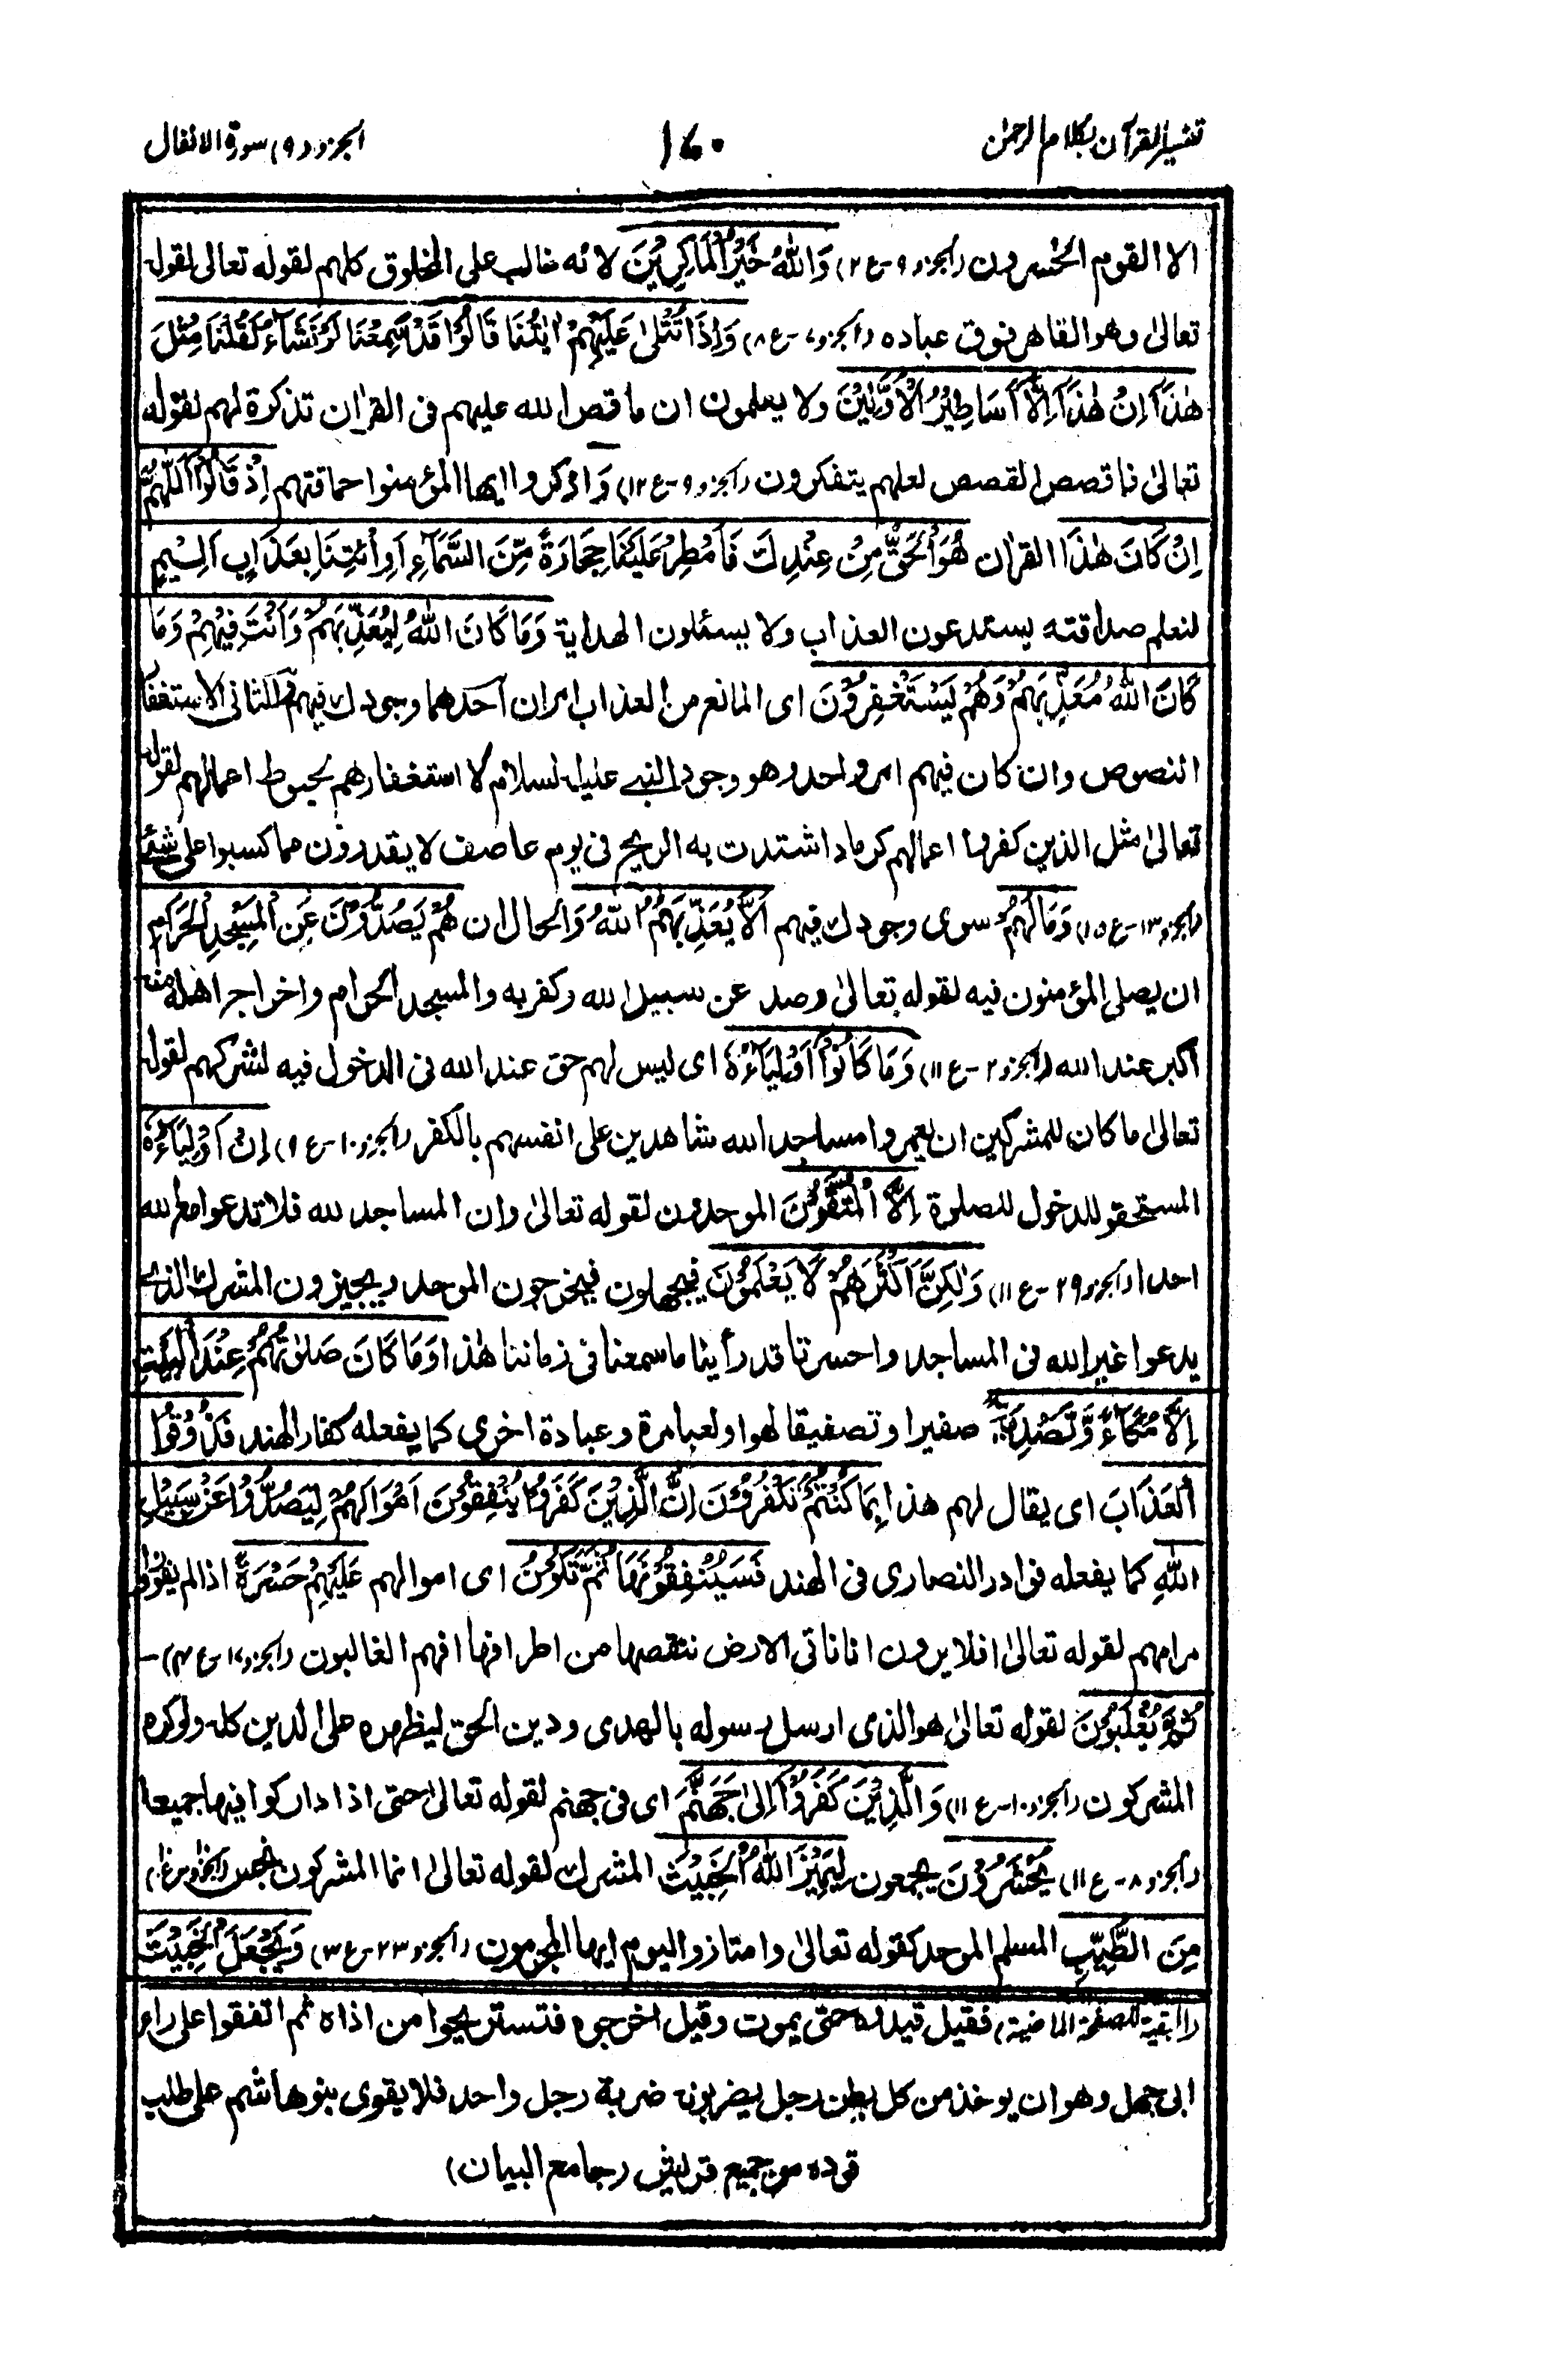 تفسير القرآن بكلام الرحمٰن
١٧٠
الجزو (٩) سورة الانفال
الا القوم الخٰسرون (الجزو ٩-ع ٢) وَاللّٰهُ خَيْرُ الْمَاكِرِيْنَ لانه غالب على المخلوق كلهم لقوله تعالى لقوله
تعالىٰ وهو القاهر فوق عباده (الجزو ٧-ع ٨) وَاِذَا تُتْلىٰ عَلَيْهِمْ اٰيٰتُنَا قَالُوْا قَدْ سَمِعْنَا لَوْ نَشَآءُ لَقُلْنَا مِثْلَ
هٰذَآ اِنْ هٰذَآ اِلَّآ اَسَاطِيْرُ الْاَوَّلِيْنَ ولا يعلمون ان ما قص الله عليهم فى القراٰن تذكرة لهم لقوله
تعالىٰ فاقصص القصص لعلهم يتفكرون (الجزو ٩-ع ١٢) وَاذكروا ايها المؤمنوا حماقتهم اِذْ قَالُوا اللّٰهُمَّ
اِنْ كَانَ هٰذَا القراٰن هُوَ الْحَقَّ مِنْ عِنْدِكَ فَاَمْطِرْ عَلَيْنَا حِجَارَةً مِّنَ السَّمَآءِ اَوِ ائْتِنَا بِعَذَابٍ اَلِيْمٍ
لنعلم صداقته يستدعون العذاب ولا يسئلون الهداية وَمَا كَانَ اللّٰهُ لِيُعَذِّبَهُمْ وَاَنْتَ فِيْهِمْ وَمَا
كَانَ اللّٰهُ مُعَذِّبَهُمْ وَهُمْ يَسْتَغْفِرُوْنَ اى المانع من العذاب امران احدهما وجودك فيهم الثانى الاستغفا
النصوص وان كان فيهم امر واحد وهو وجود النبي عليه السلام لا استغفارهم لحبوط اعمالهم لقوله
تعالىٰ مثل الذين كفروا اعمالهم كرماد اشتدت به الريح فى يوم عاصف لا يقدرون مما كسبوا على شئ
(الجزو ١٣-ع ١٥) وَمَا لَهُمْ سوى وجودك فيهم اَلَّا يُعَذِّبَهُمُ اللّٰهُ وَالحال ان هُمْ يَصُدُّوْنَ عَنِ الْمَسْجِدِ الْحَرَامِ
ان يصلى المؤمنون فيه لقوله تعالىٰ وصد عن سبيل الله وكفر به والمسجد الحرام واخراج اهله منه
اكبر عند الله (الجزو ٢-ع ١١) وَمَا كَانُوْا اَوْلِيَآءَهٗ اى ليس لهم حق عند الله فى الدخول فيه لشركهم لقوله
تعالىٰ ما كان للمشركين ان يعمروا مساجد الله شاهدين على انفسهم بالكفر (الجزو ١٠-ع ٩) اِنْ اَوْلِيَآءُهٗ
المستحقو للدخول للصلوة اِلَّا الْمُتَّقُوْنَ الموحدون لقوله تعالىٰ وان المساجد لله فلا تدعوا مع الله
احدا (الجزو ٢٩-ع ١١) وَلٰكِنَّ اَكْثَرَهُمْ لَا يَعْلَمُوْنَ فيجهلون فيخرجون الموحد ويجيزون المشرك الذى
يدعوا غير الله فى المساجد واحسرتا قد رأينا ما سمعنا فى زماننا هٰذا وَمَا كَانَ صَلٰوتُهُمْ عِنْدَ الْبَيْتِ
اِلَّا مُكَآءً وَّتَصْدِيَةً صفيرا وتصفيقا لهوا ولعبا مرة وعبادة اخرى كما يفعله كفار الهند فَذُوْقُوا
الْعَذَابَ اى يقال لهم هذا بِمَا كُنْتُمْ تَكْفُرُوْنَ اِنَّ الَّذِيْنَ كَفَرُوْا يُنْفِقُوْنَ اَمْوَالَهُمْ لِيَصُدُّوْا عَنْ سَبِيْلِ
اللّٰهِ كما يفعله فوادر النصارى فى الهند فَسَيُنْفِقُوْنَهَا ثُمَّ تَكُوْنُ اى اموالهم عَلَيْهِمْ حَسْرَةً اذا لم يفوزوا
مرامهم لقوله تعالىٰ افلا يرون انا ناتى الارض ننقصها من اطرافها افهم الغالبون (الجزو ١٧-ع ٤)-
ثُمَّ يُغْلَبُوْنَ لقوله تعالىٰ هو الذى ارسل رسوله بالهدى ودين الحق ليظهره على الدين كله ولو كره
المشركون (الجزو ١٠-ع ١١) وَالَّذِيْنَ كَفَرُوْا اِلىٰ جَهَنَّمَ اى فى جهنم لقوله تعالىٰ حتى اذا داركوا فيها جميعا
(الجزو ٨-ع ١١) يُحْشَرُوْنَ يجمعون لِيَمِيْزَ اللّٰهُ الْخَبِيْثَ المشرك لقوله تعالىٰ انما المشركون نجس
مِنَ الطَّيِّبِ المسلم الموحد كقوله تعالىٰ وامتازوا اليوم ايها المجرمون (الجزو ٢٣-ع ٣) وَيَجْعَلَ الْخَبِيْثَ
(البقية للصفحة الماضية) فقيل قيدوه حتى يموت وقيل اخرجوه فتستريحوا من اذاه ثم اتفقوا على راى
ابى جهل وهو ان يوخذ من كل بطن رجل يضربونه ضربة رجل واحد فلا يقوى بنو هاشم على طلب
قوده من جميع قريش (جامع البيان)